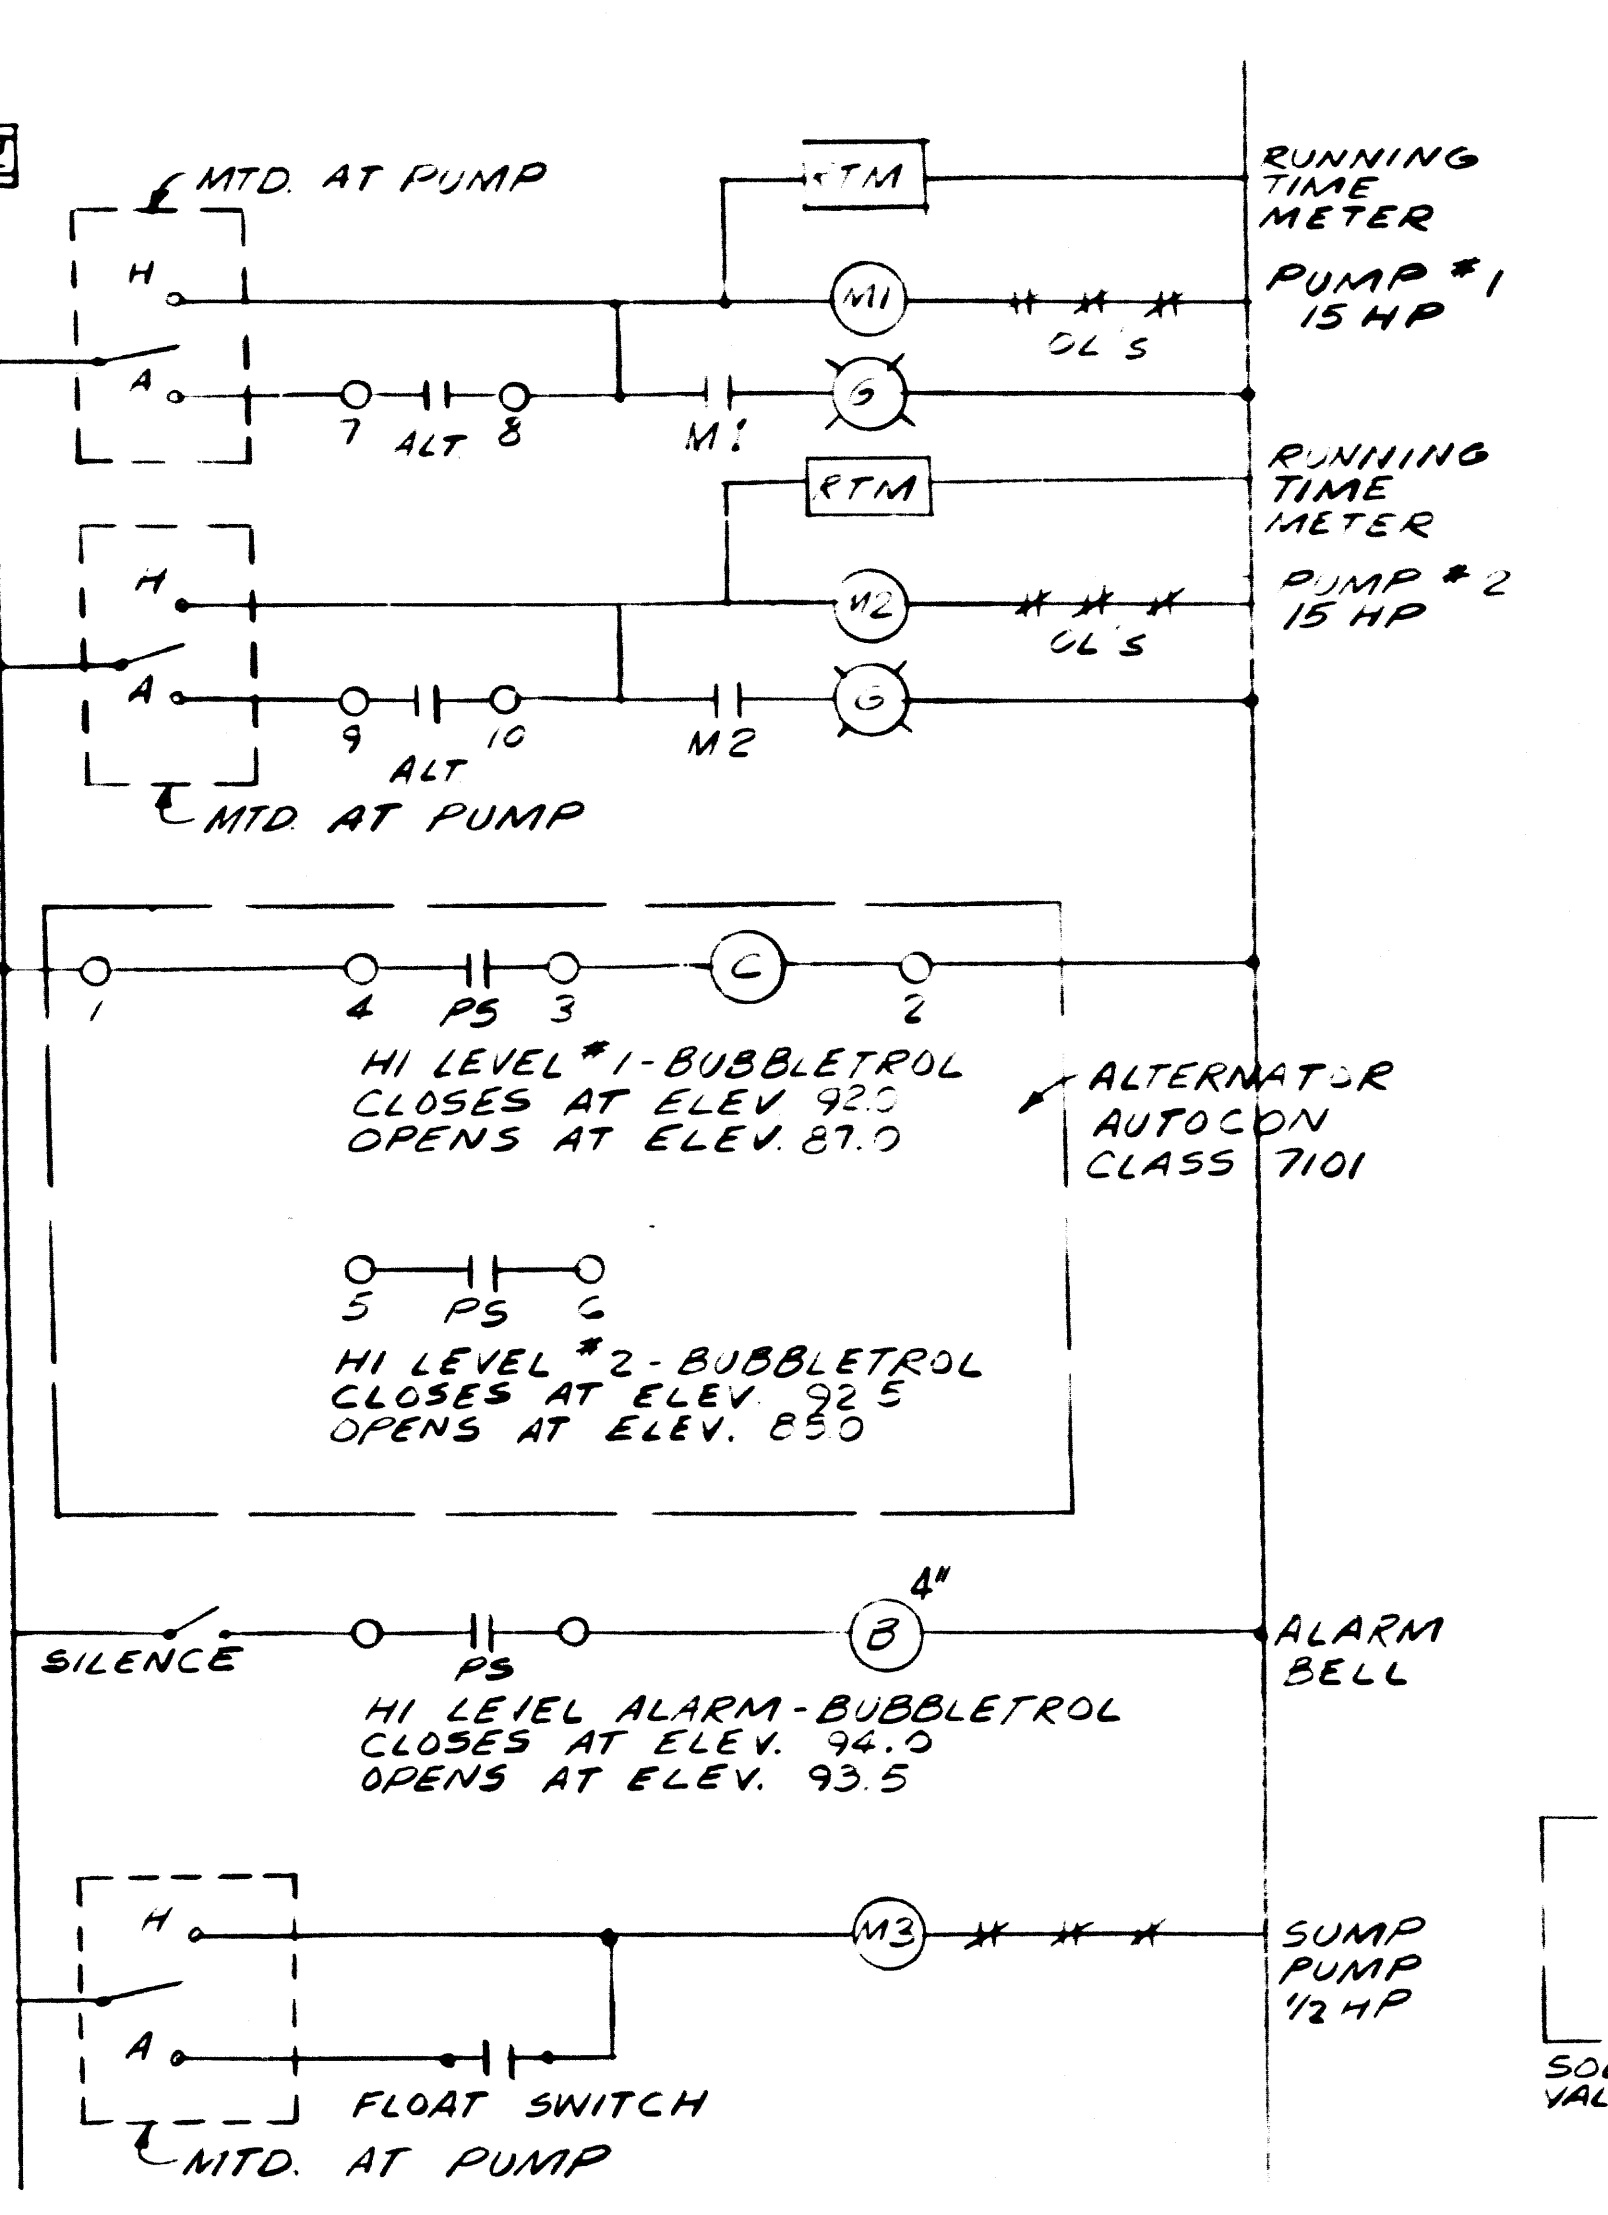 MTD. AT PUMP
RTM
RUNNING
TIME
METER
H
M1
OL'S
PUMP #1
15 HP
A
7
ALT
8
M1
G
RTM
RUNNING
TIME
METER
H
M2
OL'S
PUMP #2
15 HP
A
9
ALT
10
M2
G
MTD. AT PUMP
1
4
PS
3
C
2
HI LEVEL #1-BUBBLETROL
CLOSES AT ELEV 92.0
OPENS AT ELEV. 87.0
ALTERNATOR
AUTOCON
CLASS 7101
5
PS
6
HI LEVEL #2-BUBBLETROL
CLOSES AT ELEV. 92.5
OPENS AT ELEV.
SILENCE
PS
4"
B
ALARM
BELL
HI LEVEL ALARM-BUBBLETROL
CLOSES AT ELEV. 94.0
OPENS AT ELEV. 93.5
H
M3
SUMP
PUMP
1/2 HP
A
FLOAT SWITCH
MTD. AT PUMP